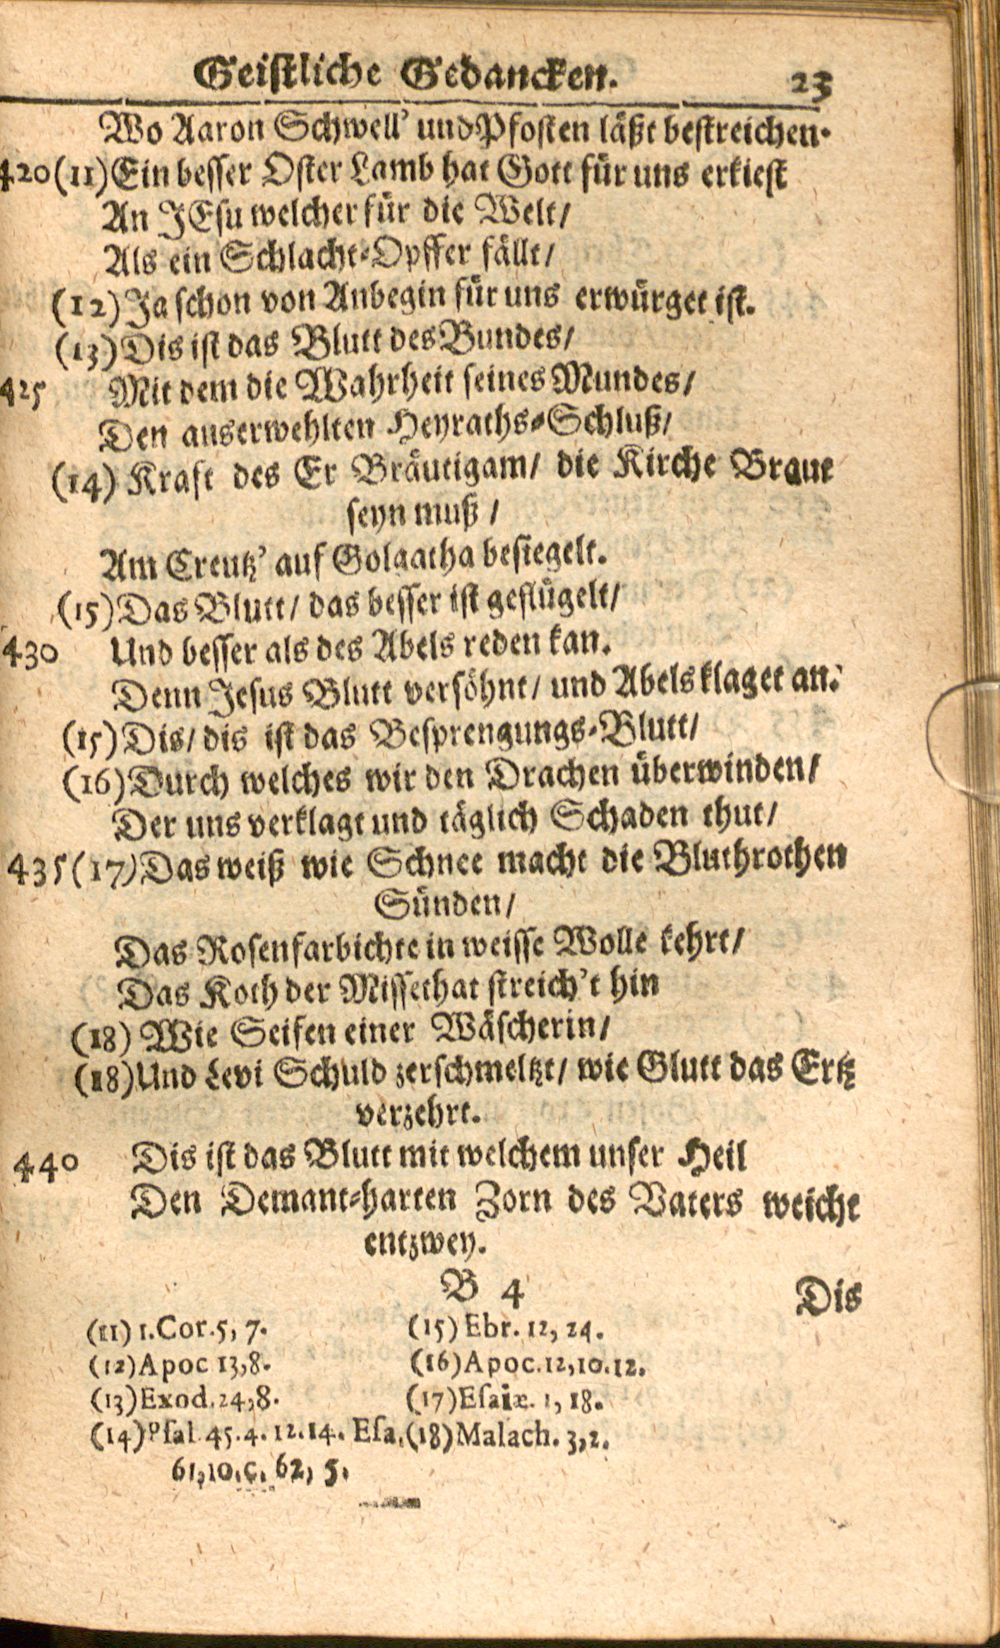 Geistliche Gedancken. 23
Wo Aaron Schwell' und Pfosten läßt bestreichen.
420 (11) Ein besser Oster Lamb hat Gott für uns erkiest
An JEsu welcher für die Welt/
Als ein Schlacht-Opffer fällt/
(12) Ja schon von Anbegin für uns erwürget ist.
(13) Dis ist das Blutt des Bundes/
425 Mit dem die Wahrheit seines Mundes/
Den auserwehlten Heyraths-Schluß/
(14) Kraft des Er Bräutigam/ die Kirche Braut
seyn muß/
Am Creutz' auf Golgatha besiegelt.
(15) Das Blutt/ das besser ist geflügelt/
430 Und besser als des Abels reden kan.
Denn Jesus Blutt versöhnt/ und Abels klaget an.
(15) Dis/ dis ist das Besprengungs-Blutt/
(16) Durch welches wir den Drachen überwinden/
Der uns verklagt und täglich Schaden thut/
435 (17) Das weiß wie Schnee macht die Bluthrothen
Sünden/
Das Rosenfarbichte in weisse Wolle kehrt/
Das Koth der Missethat streich't hin
(18) Wie Seifen einer Wäscherin/
(18) Und Levi Schuld zerschmeltzt/ wie Glutt das Ertz
verzehrt.
440 Dis ist das Blutt mit welchem unser Heil
Den Demant-harten Zorn des Vaters weicht
entzwey.
B 4 Dis
(11) 1. Cor. 5, 7. (15) Ebr. 12, 24.
(12) Apoc 13, 8. (16) Apoc. 12, 10. 12.
(13) Exod. 24, 8. (17) Esaiæ. 1, 18.
(14) Psal 45. 4. 12. 14. Esa. (18) Malach. 3, 2.
61, 10. c. 62, 5.